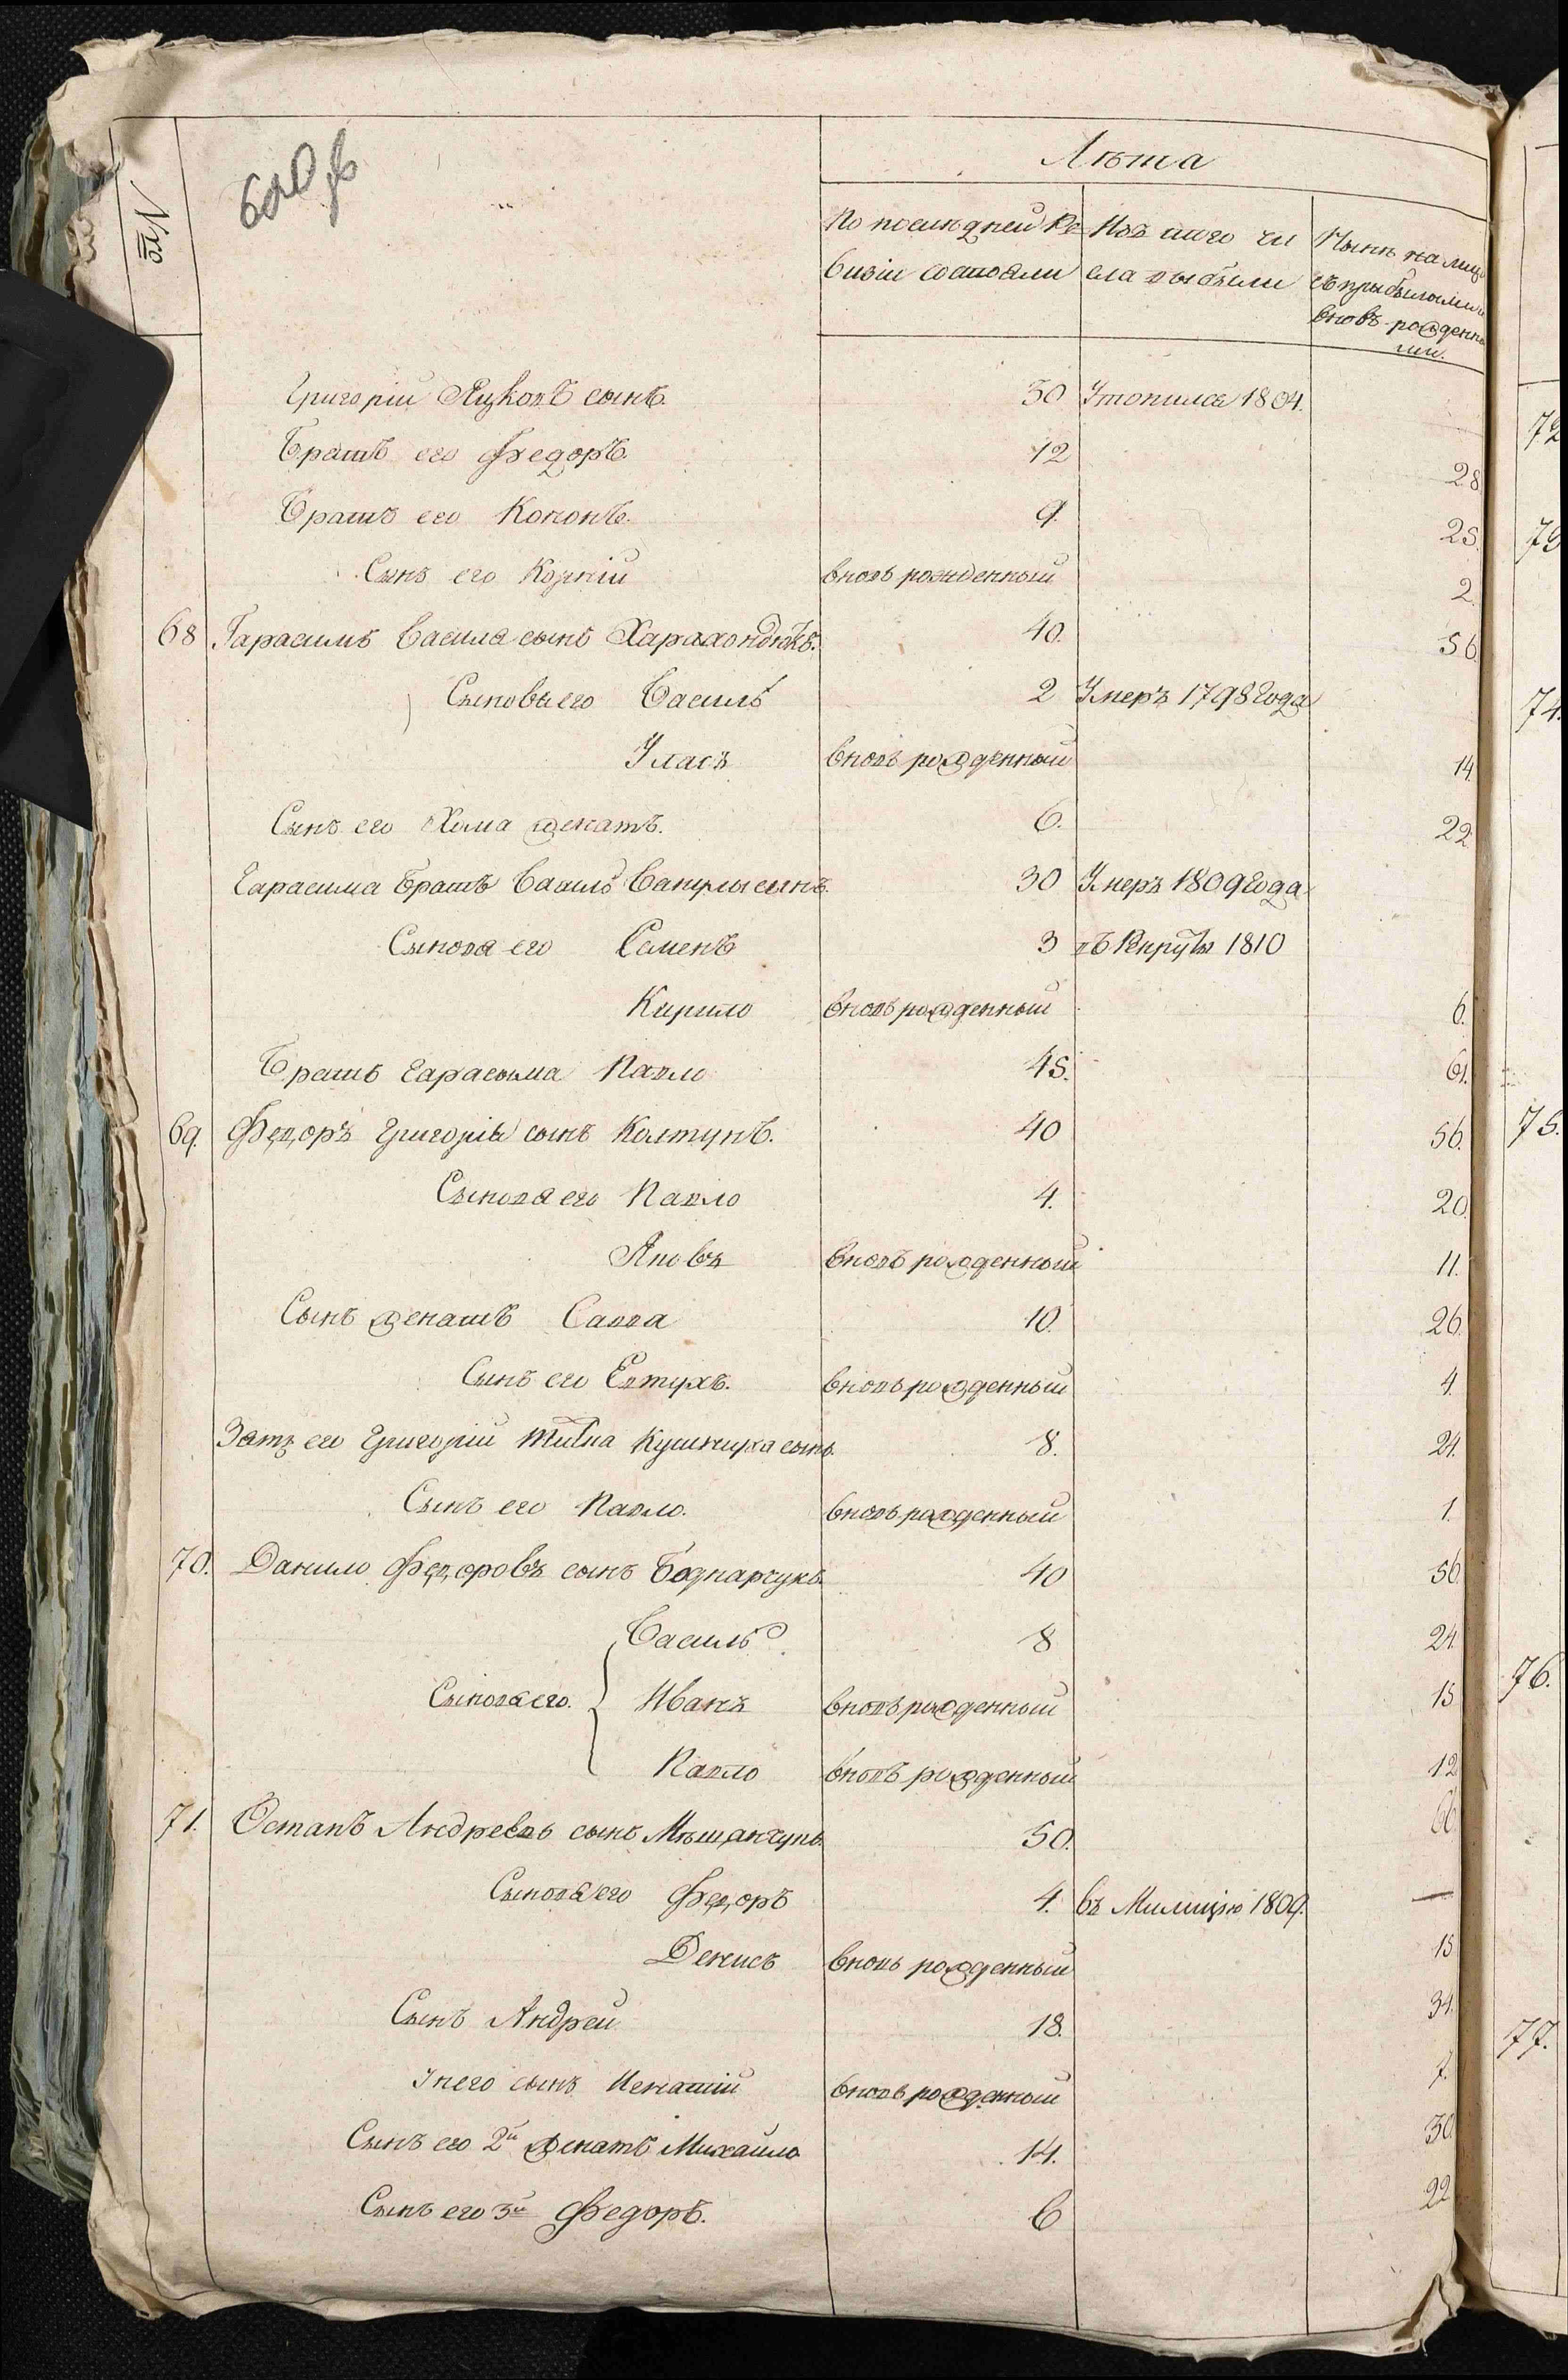 №
Лѣта
По последней Ре-
визіи состояли
Изъ того чи
сла выбыли
Нынѣ на лицо
съ прыбылыми и
вновь рожденны
ми.
Григорій Яцковъ сынъ. 30 Утопился 1804.
Братъ его Федоръ. 12 28
Братъ его Кононъ. 9. 25.
Сынъ его Корній вновь рожденный 2
68 Гарасимъ Василя сынъ 40. 56
Сыновья его Василь 2 Умеръ 1798 Года
Уласъ вновь рожденный 14
Сынъ его Хома женатъ. 6. 22
Гарасима братъ Василь сынъ 30 Умеръ 1809 Года
Сыновя его Семенъ 3 въ Рекруты 1810
Кирило вновь рожденный 6.
Братъ Гарасыма Павло 45. 61.
69. Федоръ Григорія сынъ Колтунъ. 40 56.
Сыновя его Павло 4. 20
Яковъ вновь рожденный 11.
Сынъ женатъ Савва 10. 26.
Сынъ его Евтухъ. вновь рожденный 4.
Зять его Григорій сынъ 8. 24.
Сынъ его Павло. вновь рожденный 1.
70. Данило Федоровъ сынъ Боднарчукъ 40 56
Василь 8 24
Сыновя его. Иванъ вновь рожденный 15
Павло вновь рожденный 12
71. Остапъ Андреевъ сынъ 50. 66
Сыновя его Федоръ 4. въ Милицію 1809. —
Денисъ вновь рожденный 15
Сынъ Андрей 18. 34.
У него сынъ Игнатій вновь рожденный 7.
Сынъ его 2й женатъ Михайло 14. 30
Сынъ его 3й Федоръ. 6 22
72
73
74.
75.
76.
77.